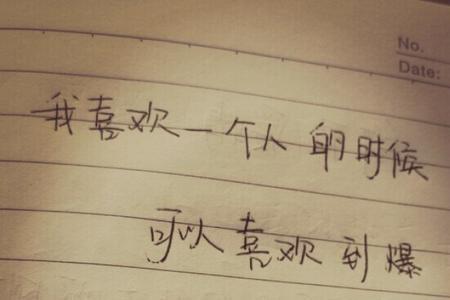 No.
Date:
我喜欢一个人的时候
可以喜欢到爆